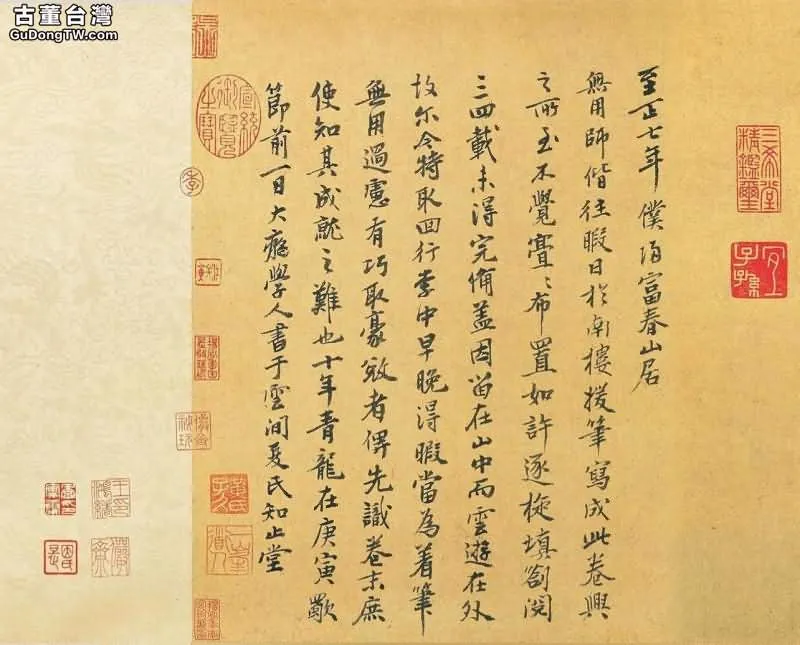 古董台灣
GuDongTW.com
至正七年僕歸富春山居
無用師偕往暇日於南樓援筆寫成此卷興
之所至不覺亹〻布置如許逐旋填劄閱
三四載未得完備蓋因留在山中而雲遊在外
故尔今特取回行李中早晚得暇當為着筆
無用過慮有巧取豪敚者俾先識卷末庶
使知其成就之難也十年青龍在庚寅歜
節前一日大癡學人書于雲間夏氏知止堂
三希堂精鑑璽
宜子孫
宣統御覽之寶
季
黃氏子久
一峯道人